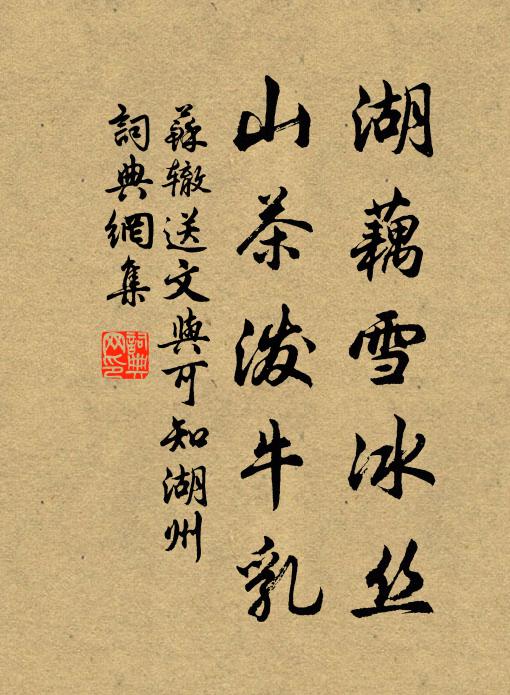 湖藕雪冰丝
山茶泼牛乳
蘇辙送文與可知湖州
詞典網集
詞典网印